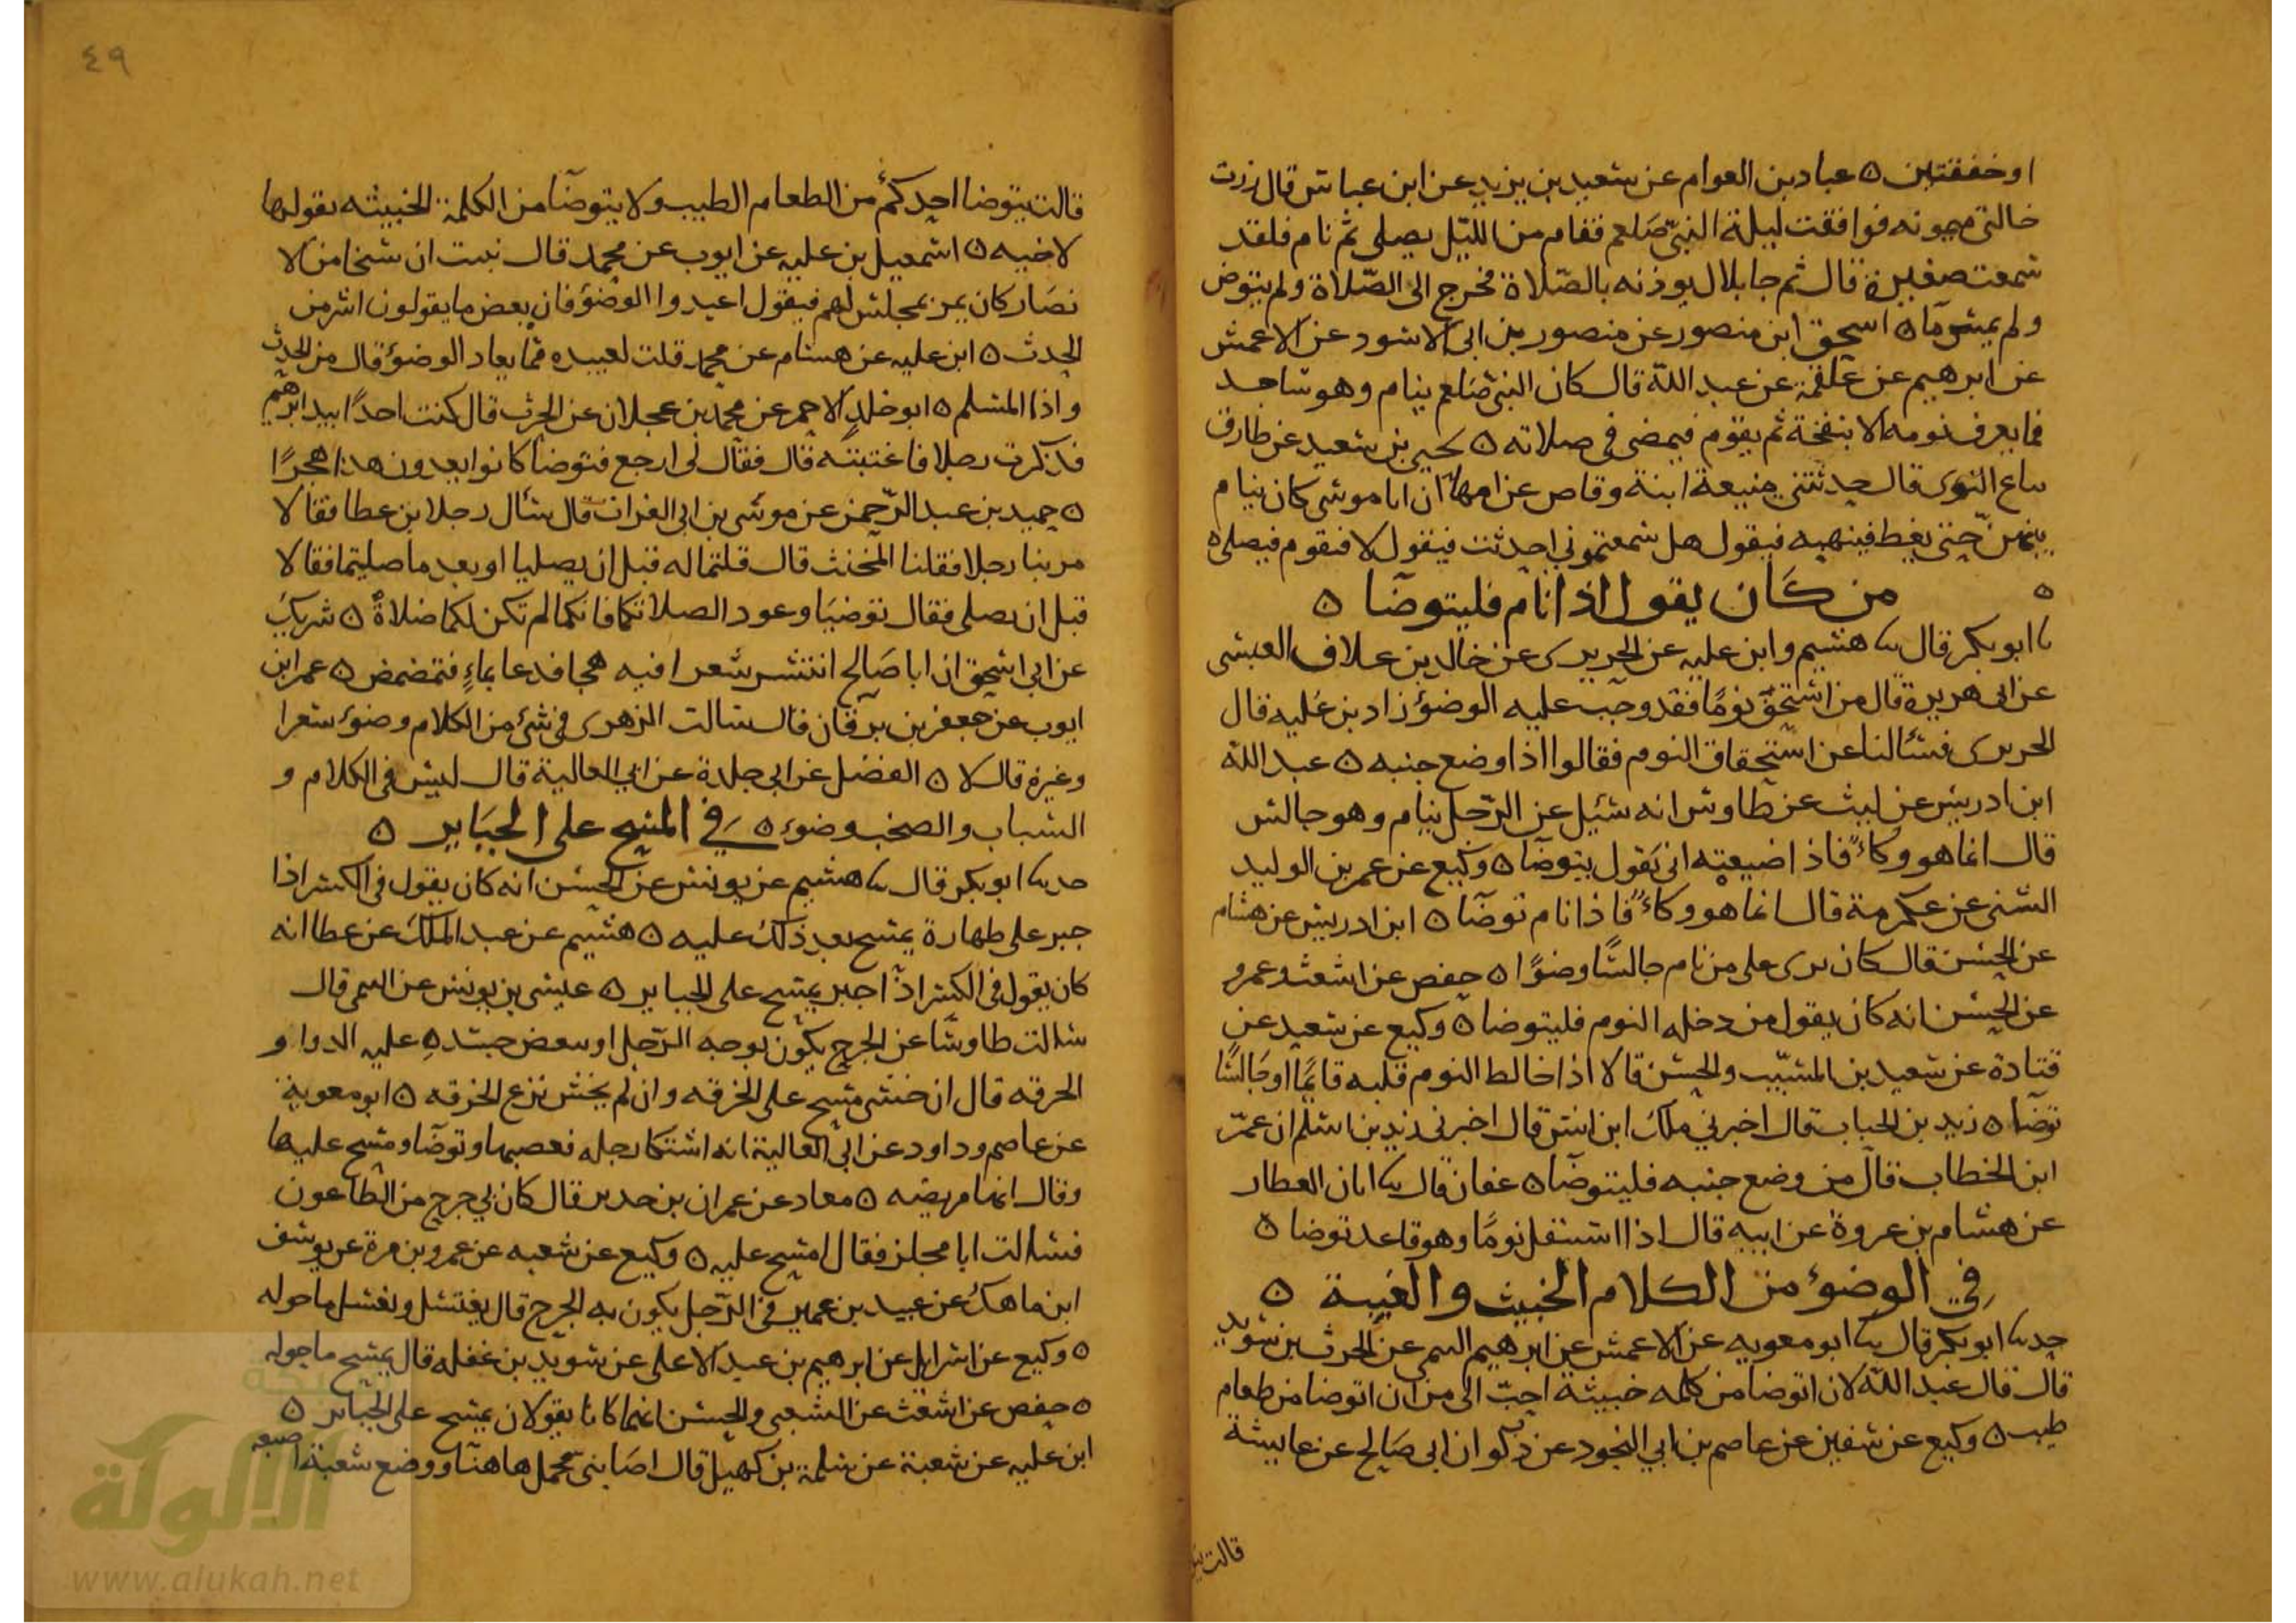 او خفقتين ٥ عباد بن العوام عن سعيد بن يزيد عن ابن عباس قال زرت
خالتي ميمونه فوافقت ليلة النبي صلعم فقام من الليل يصلي ثم نام فلقد
سمعت صفيره قال ثم جا بلال يوذنه بالصلاة فخرج الى الصلاة ولم يتوض
ولم يمس مآ ٥ اسحق ابن منصور عن منصور بن ابي الاسود عن الاعمش
عن ابرهيم عن علقمة عن عبد الله قال كان النبي صلعم ينام وهو ساجد
فما يعرف نومه الا بنفخة ثم يقوم فيمضي في صلاته ٥ يحيى بن سعيد عن طارق
بياع النوى قال حدثتني منيعة ابنة وقاص عن امها ان ابا موسى كان ينام
بينهن حتى يغط فينبهه فيقول هل سمعتموني احدثت فيقول لا فيقوم فيصلي ٥
٥ من كان يقول اذا نام فليتوضا ٥
نا ابو بكر قال نا هشيم وابن عليه عن الجريري عن خالد بن علاق العبسي
عن ابي هريرة قال من استحق نومًا فقد وجب عليه الوضوء زاد بن عليه قال
الجريري فسئالنا عن استحقاق النوم فقالوا اذا وضع جنبه ٥ عبد الله
ابن ادريس عن ليث عن طاوس انه سئيل عن الرجل ينام وهو جالس
قال انما هو وكاءً فاذا ضيعته اني يقول يتوضآ ٥ وكيع عن عمر بن الوليد
الشني عن عكرمة قال انما هو وكاءً فاذا نام توضآ ٥ ابن ادريس عن هشام
عن الحسن قال كان يرى على من نام جالسًا وضوًا ٥ حفص عن اشعث وعمرو
عن الحسن انه كان يقول من دخله النوم فليتوضا ٥ وكيع عن سعيد عن
قتادة عن سعيد بن المسيب والحسن قالا اذا خالط النوم قلبه قايمًا او جالسًا
توضآ ٥ زيد بن الحباب قال اخبرني ملك ابن انس قال اخبرني زيد بن اسلم ان عمر
ابن الخطاب قال من وضع جنبه فليتوضآ ٥ عفان قال نا ابان العطار
عن هشام بن عروة عن ابيه قال اذا استثقل نومًا وهو قاعد توضا ٥
في الوضوء من الكلام الخبيث والغيبة ٥
حدنا ابو بكر قال نا ابو معويه عن الاعمش عن ابرهيم التيمي عن الحرث بن سويد
قال قال عبد الله لان اتوضا من كلمه خبيثة احب الى من ان اتوضا من طعام
طيب ٥ وكيع عن سفين عن عاصم بن ابي النجود عن ذكوان ابي صالح عن عايشة
قالت يتو
٤٩
قالت يتوضا احدكم من الطعام الطيب ولا يتوضآ من الكلمة الخبيثه يقولها
لاخيه ٥ اسمعيل بن عليه عن ايوب عن محمد قال نبيت ان شيخا من الا
نصار كان يمر بمجلس لهم فيقول اعيدوا الوضوء فان بعض ما يقولون اشر من
الحدث ٥ ابن عليه عن هشام عن محمد قلت لعبيده مما يعاد الوضوء قال من الحدث
واذا المسلم ٥ ابو خلد الاحمر عن محمد بن عجلان عن الحرث قال كنت احدًا بيد ابرهيم
فذكرت رجلا فاغتبته قال فقال لي ارجع فتوضآ كانوا يعدون هذا هجرًا
٥ حميد بن عبد الرحمن عن موسى بن ابي الفرات قال سئال رجلا بن عطا فقالا
مر بنا رجلا فقلنا المخنث قال قلتما له قبل ان يصليا او بعد ما صليتما فقالا
قبل ان نصلي فقال توضيَا وعودا لصلاتكما فانكما لم تكن لكما صلاةٌ ٥ شريك
عن ابي اسحق ان ابا صالح انتشر شعرا فيه هجا فدعا بماءٍ فتمضمض ٥ عمر ابن
ايوب عن جعفر بن برقان قال سئالت الزهري في شئ من الكلام وضوء شعرا
وغيره قال لا ٥ الفضل عن ابي خلدة عن ابي العالية قال ليس في الكلام و
السباب والصخب وضوء ٥ في المسح على الجبَاير ٥
حدنا ابو بكر قال نا هشيم عن يونس عن الحسن انه كان يقول في الكسر اذا
جبر على طهارة يمسح بعد ذلك عليه ٥ هشيم عن عبد الملك عن عطا انه
كان يقول في الكسر اذا جبر يمسح على الجباير ٥ عيسى بن يونس عن التيمي قال
سئالت طاوسًا عن الجرح يكون بوجه الرجل او ببعض جسده عليه الدوا و
الخرقه قال ان خشي مسح على الخرقه وان لم يخش نزع الخرقه ٥ ابو معوية
عن عاصم وداود عن ابي العالية انه اشتكا رجله فعصبها وتوضآ ومسح عليها
وقال انها مريضه ٥ معاد عن عمران بن حدير قال كان بي جرح من الطاعون
فسئالت ابا مجلز فقال امسح عليه ٥ وكيع عن شعبه عن عمرو بن مرة عن يوسف
ابن ماهك عن عبيد بن عمير في الرجل يكون به الجرح قال يغتسل ويغسل ما حوله
٥ وكيع عن اسرايل عن ابرهيم بن عبد الاعلى عن سويد بن غفله قال يمسح ما حوله
٥ حفص عن اشعث عن الشعبي والحسن انهما كانا يقولان يمسح على الجباير ٥
ابن عليه عن شعبة عن سلمة بن كهيل قال اصابني محمل هاهنا ووضع شعبة اصبعه
الألوكة
www.alukah.net